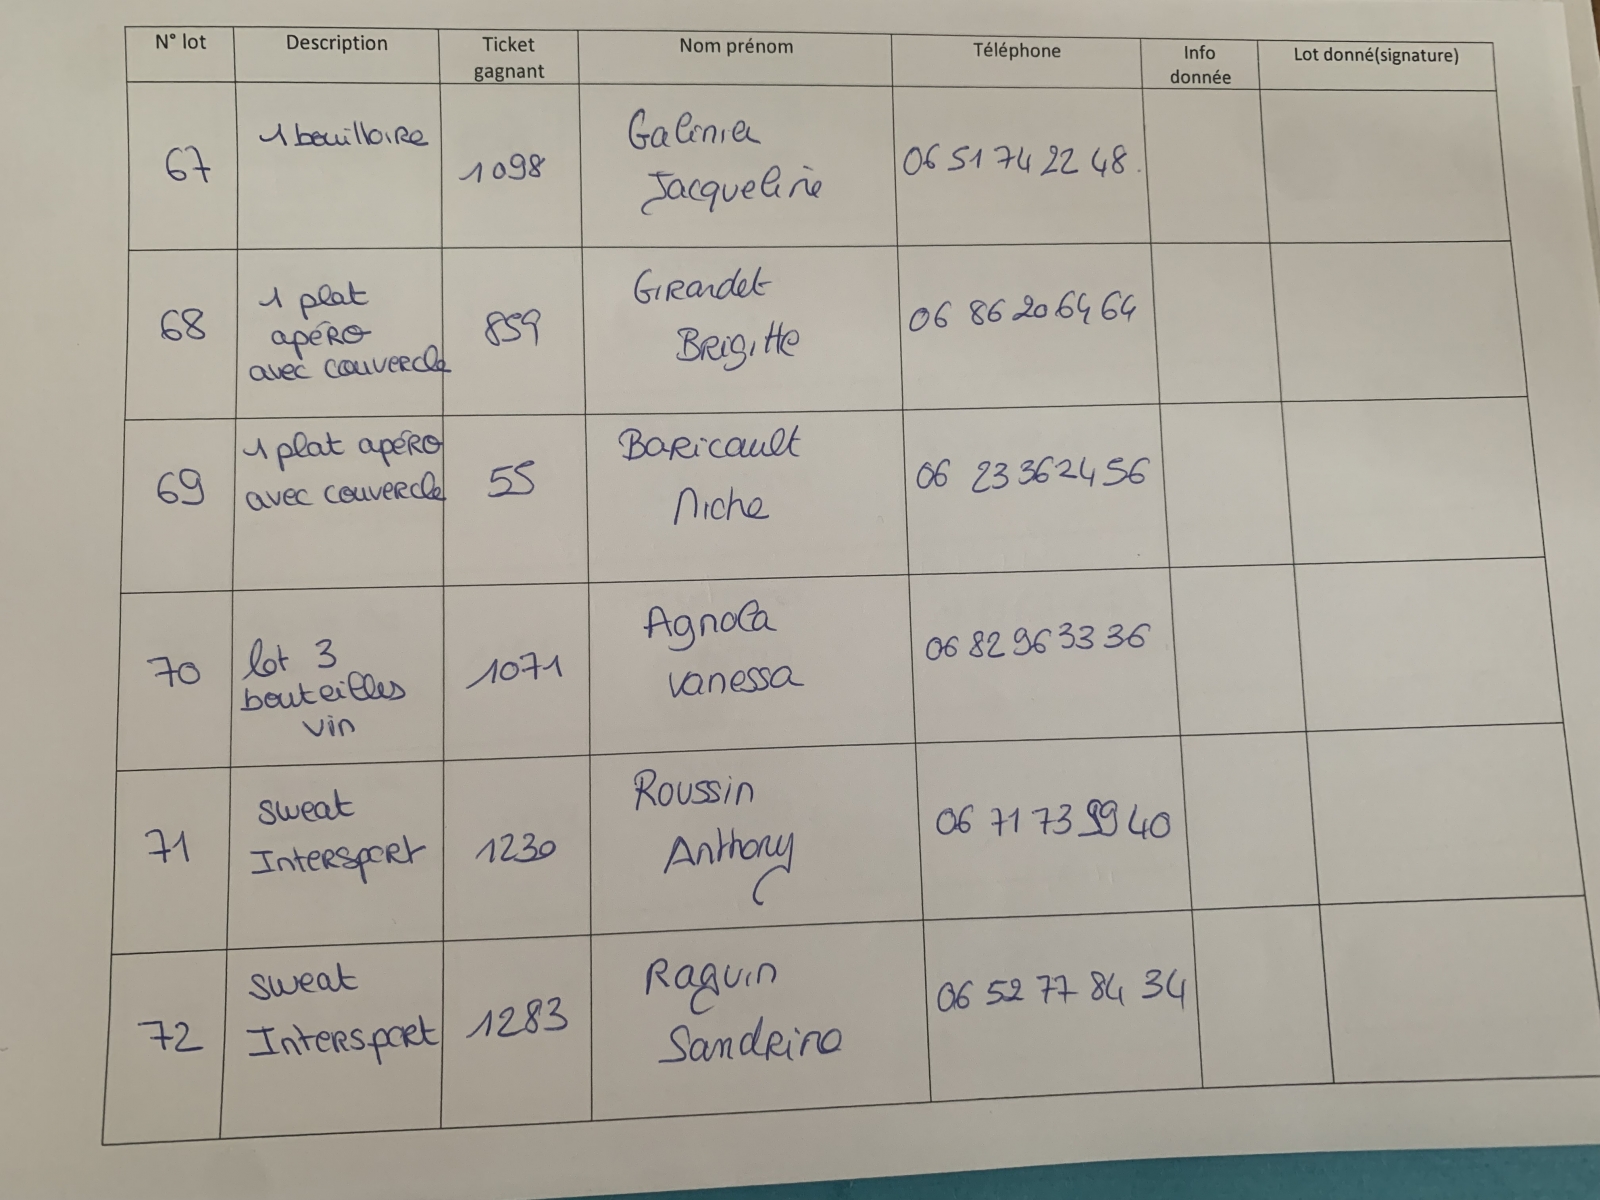 N° lot Description Ticket gagnant Nom prénom Téléphone Info donnée Lot donné(signature)
67 1 bouilloire 1098 Galinier Jacqueline 06 51 74 22 48.
68 1 plat apéro avec couvercle 859 Girardet Brigitte 06 86 20 64 64
69 1 plat apéro avec couvercle 55 Baricault Niche 06 23 36 24 56
70 lot 3 bouteilles vin 1071 Agnola Vanessa 06 82 96 33 36
71 sweat Intersport 1230 Roussin Anthony 06 71 73 99 40
72 sweat Intersport 1283 Raguin Sandrine 06 52 77 84 34